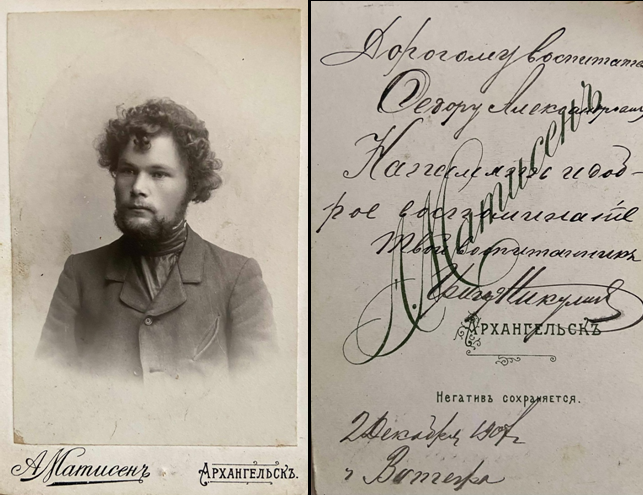 А. Матисенъ
Архангельскъ.
Дорогому воспитате
Федору Александрович
На память и доб-
рое воспоминанiе
твой воспитанникъ
Никулин
А. Матисенъ
Архангельскъ
Негативъ сохраняется.
2 Декабря 190
г Вытегра